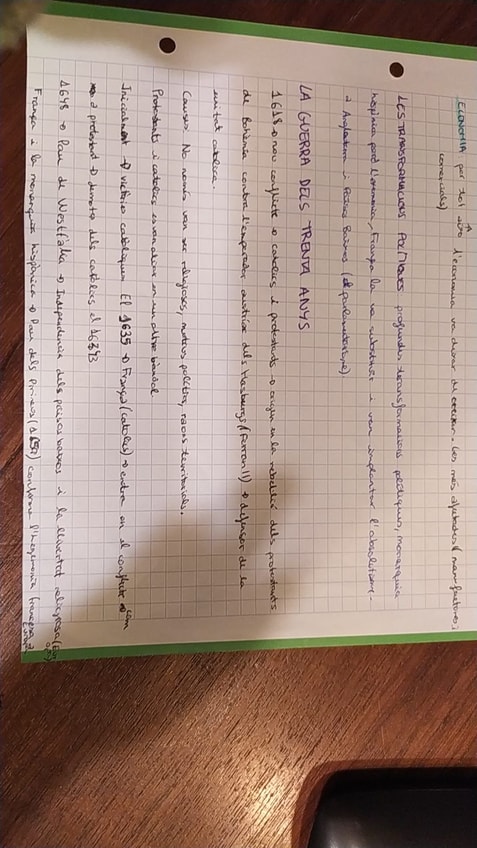 ECONOMIA per tot això l'economia va deixar de créixer. Les més afectades (manufactures i
comercials)
LES TRANSFORMACIONS POLÍTIQUES profundes transformacions polítiques, monarquia
hispànica perd l'hegemonia, França la va substituir i van implantar l'absolutisme-
a Anglaterra i Països Baixos (el parlamentarisme).
LA GUERRA DELS TRENTA ANYS
1618 → nou conflicte → catòlics i protestants → origen en la rebel·lió dels protestants
de Bohèmia contra l'emperador austríac dels Hasburgs (Ferran II) → defensor de la
unitat catòlica.
Causes: No només van ser religioses, motius polítics, raons territorials.
Protestants i catòlics en un altre bàndol
Inicialment → victòria catòliques El 1635 → França (catòlics) → entra en el conflicte com
a protestant → derrota dels catòlics el 1643
1648 → Pau de Westfàlia → Independència dels països baixos i la llibertat religiosa
França i la monarquia hispànica → Pau dels Pirineus (1659) confirma l'hegemonia francesa a
Europa